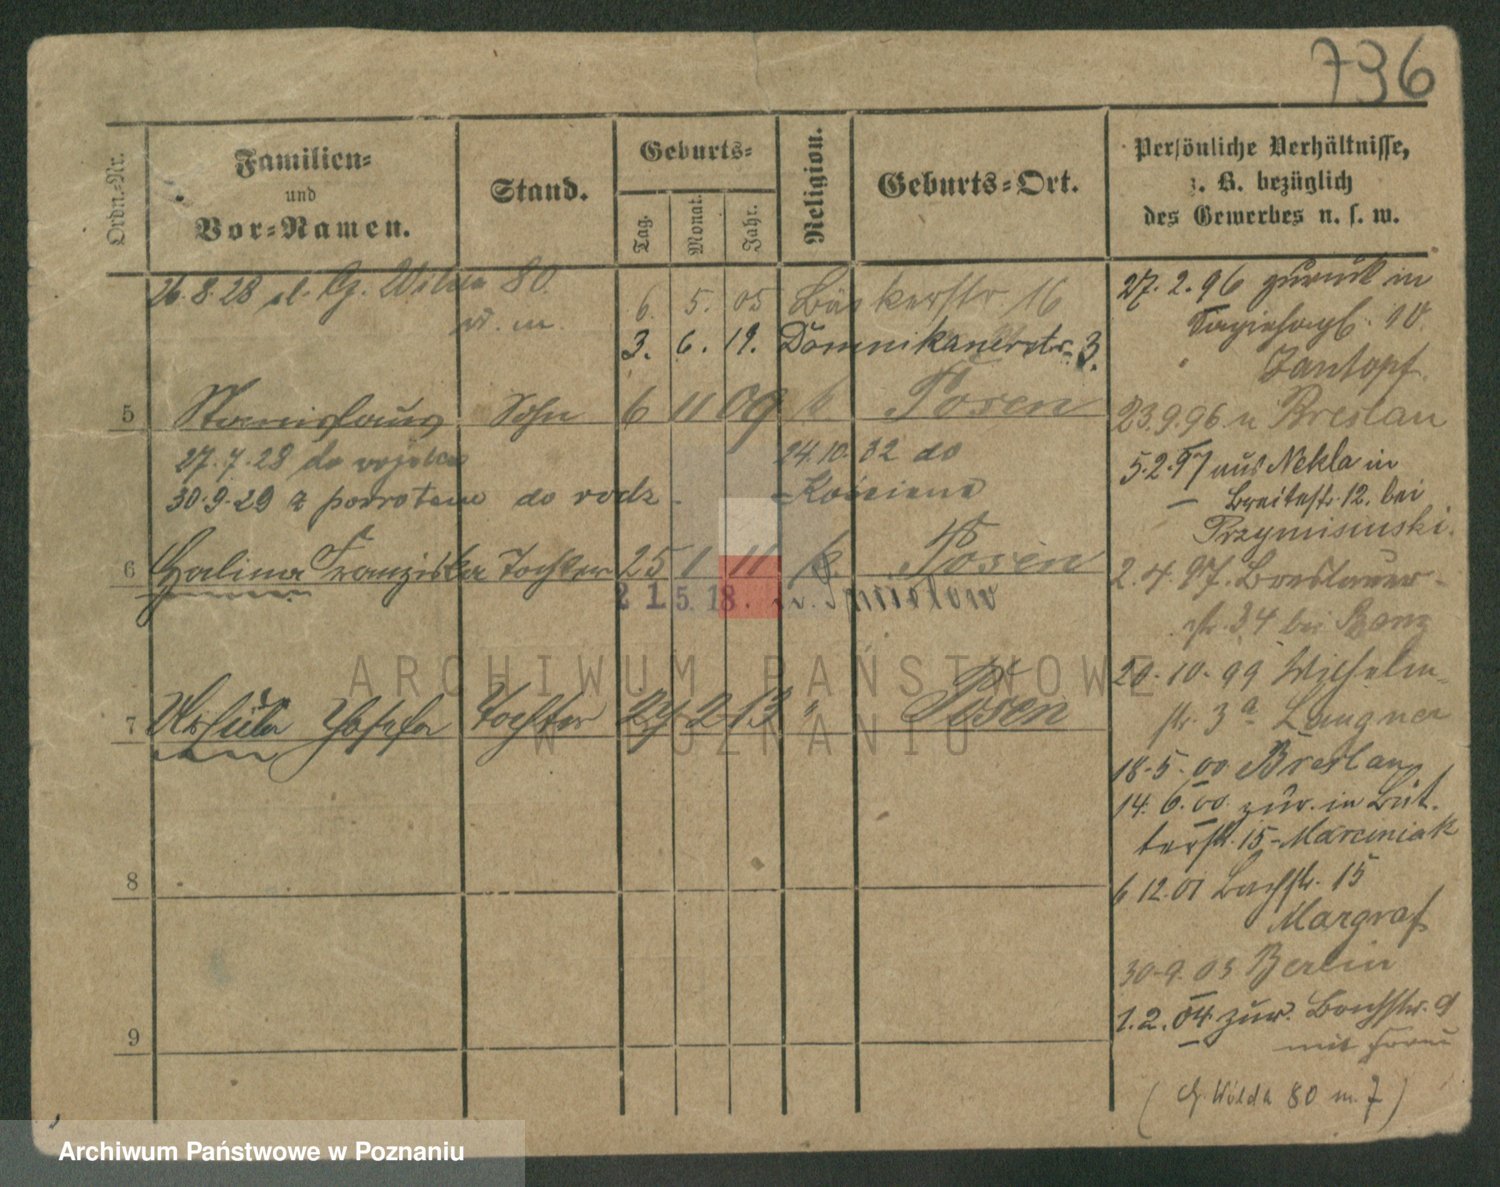 736
Ordn.-Nr.
Familien-
und
Vor-Namen.
Stand.
Geburts-
Tag.
Monat.
Jahr.
Religion.
Geburts-Ort.
Persönliche Verhältnisse,
z. B. bezüglich
des Gewerbes u. s. w.
26.8.28 ul. G. Wilda 80
m.
6. 5. 05 Bäckerstr 16
3. 6. 19. Dominikanerstr. 3.
5 Stanislaus Sohn 6 11 09 k Posen
27.7.28 do wojska
30.9.29 z powrotem do rodz.
24.10.32 do
Kościana
6 Halina Franziska Tochter 25 1 11 k Posen
21 5. 18.
7 Ursula Josefa Tochter 2 13 " Posen
8
9
27. 2. 96 zurück in
10
23.9.96 n Breslau
5.2.97 aus Nekla in
Breitestr. 12. bei
Przymisinski.
2. 4. 97. Breslauer-
str. 34 bei
20. 10. 99 Wilhelm-
str. 3a Langner
18. 5. 00 Breslau
14. 6. 00. zur. in But-
terstr. 15 - Marciniak
6 12. 01 Bachstr. 15
Margraf
30. 9. 03 Berlin
1. 2. 04. zur. Bachstr. 9
mit Frau
( G. Wilda 80 m. 7 )
ARCHIWUM PAŃSTWOWE
W POZNANIU
Archiwum Państwowe w Poznaniu